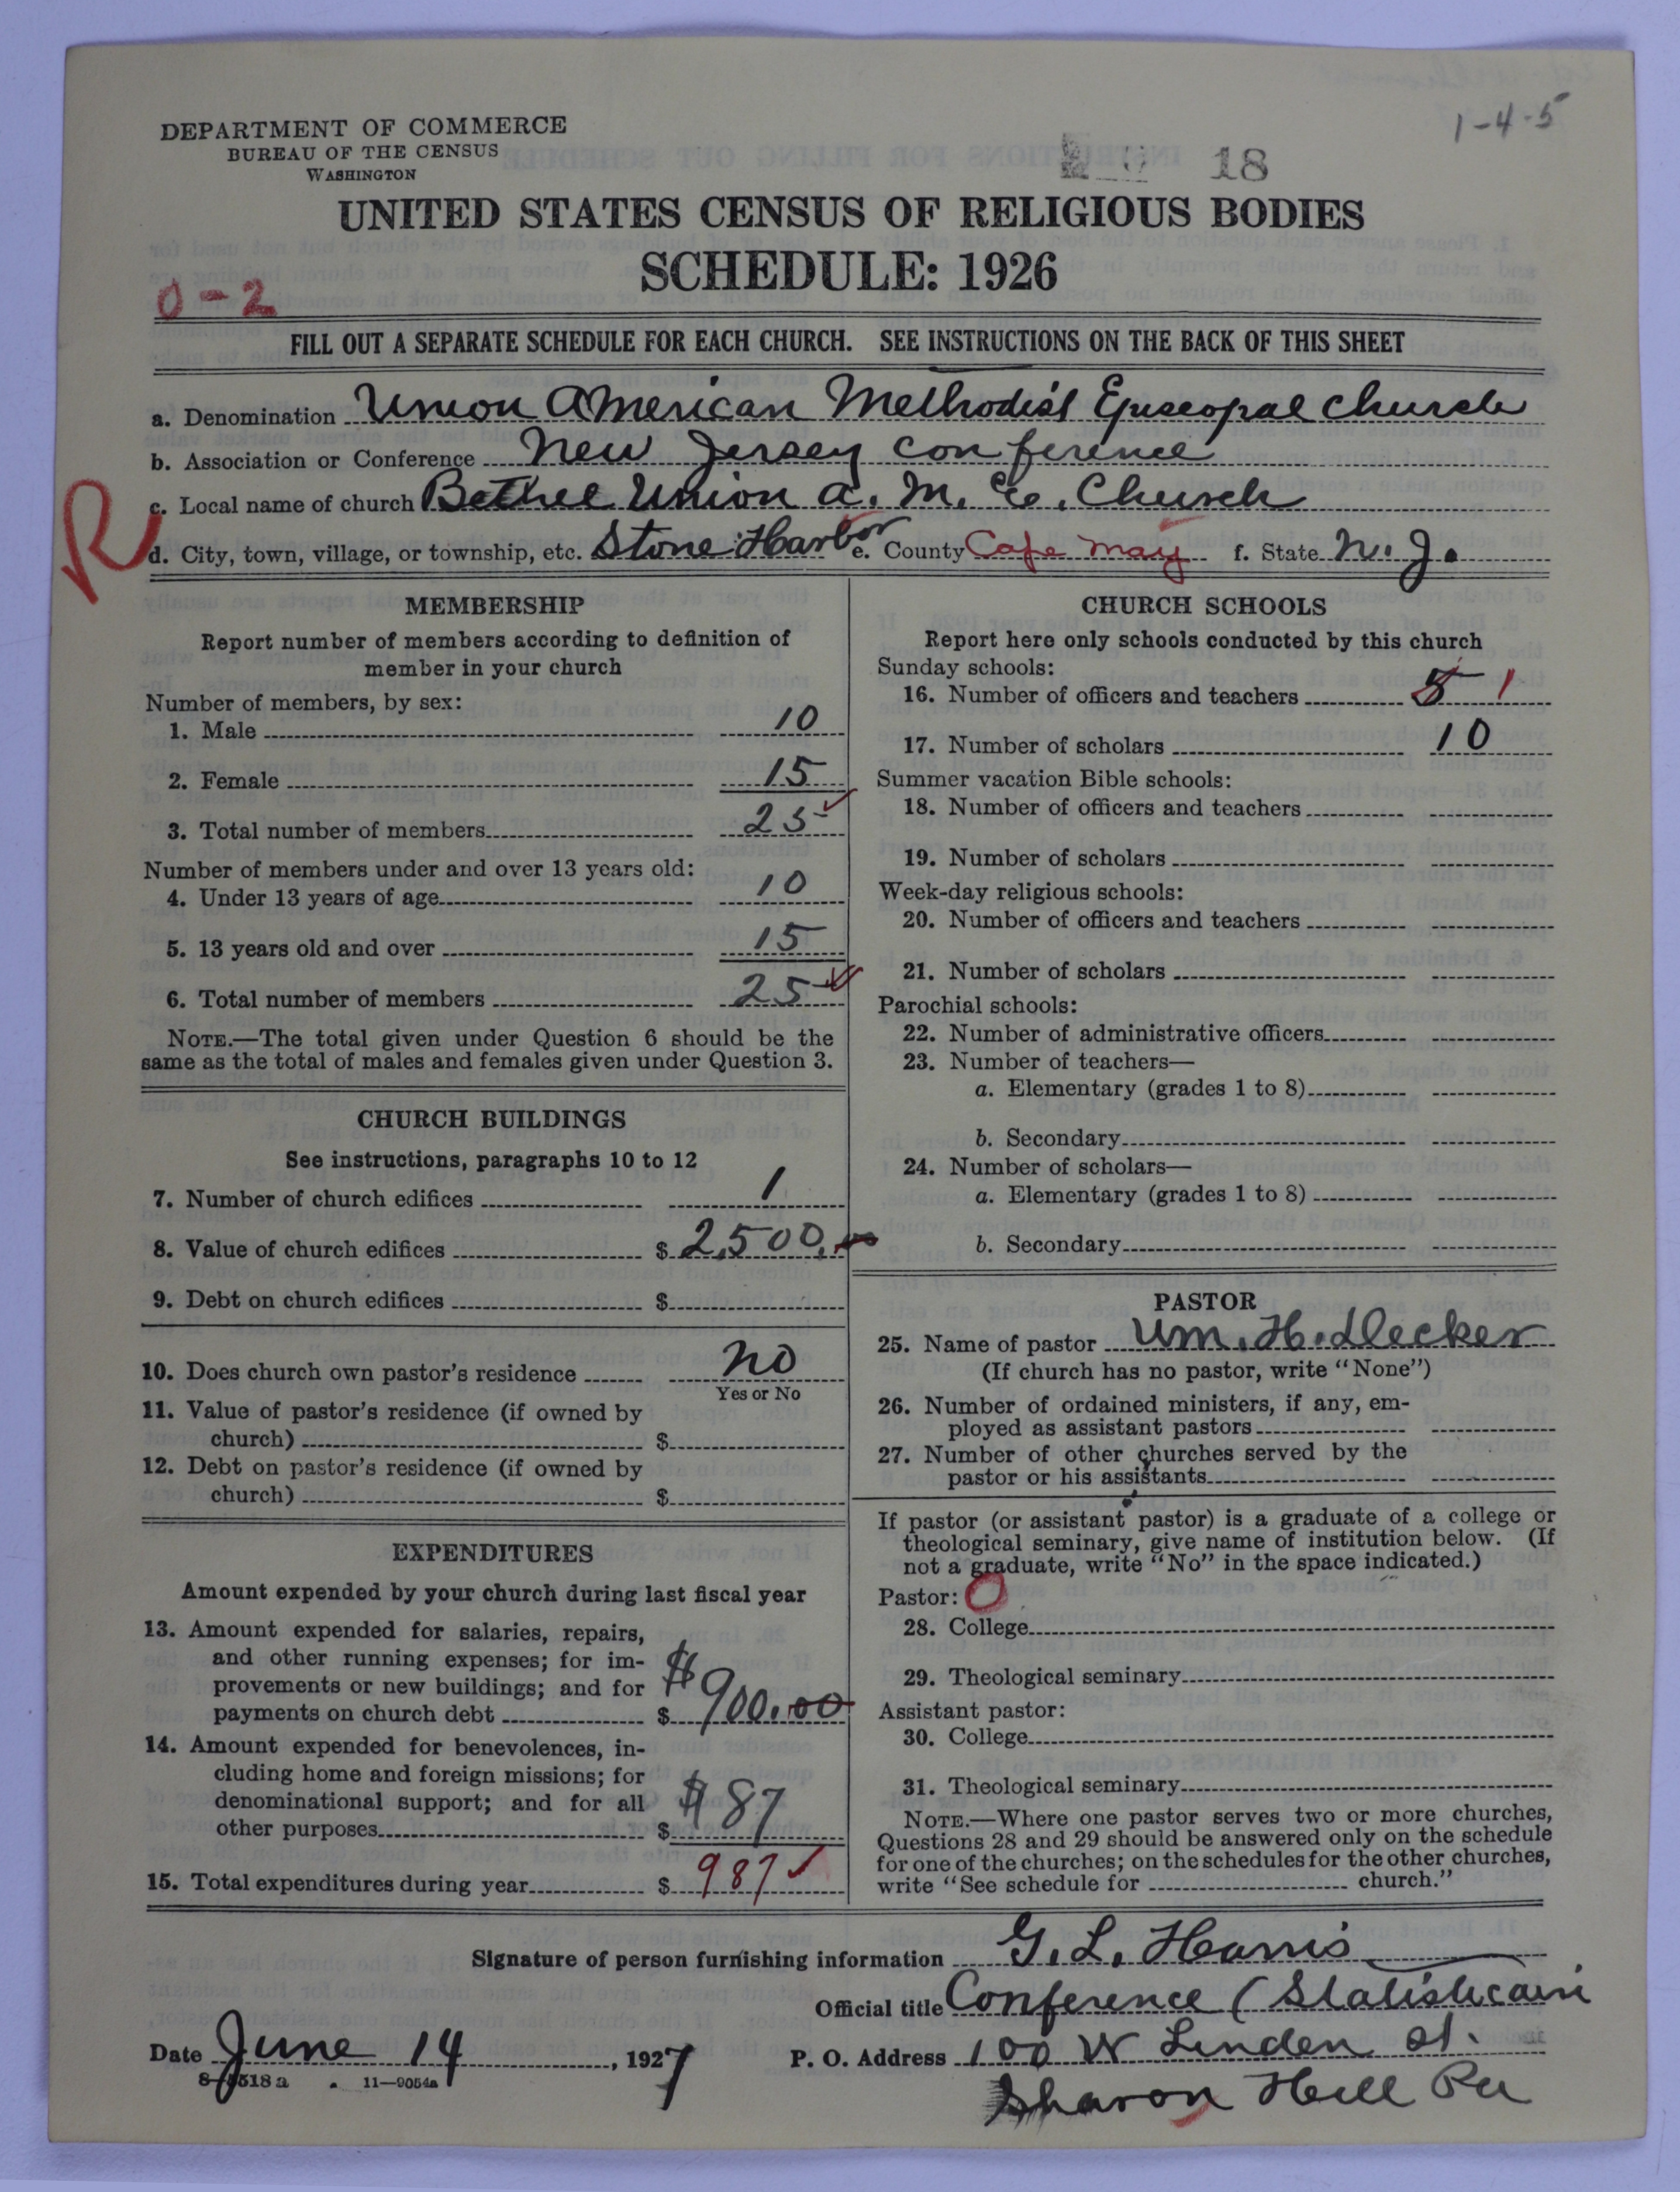 1-4-5
DEPARTMENT OF COMMERCE
BUREAU OF THE CENSUS
WASHINGTON
18
UNITED STATES CENSUS OF RELIGIOUS BODIES
SCHEDULE: 1926
0-2
FILL OUT A SEPARATE SCHEDULE FOR EACH CHURCH. SEE INSTRUCTIONS ON THE BACK OF THIS SHEET
a. Denomination Union American Methodist Episcopal Church
b. Association or Conference New Jersey Conference
R
c. Local name of church Bethel Union A. M. E. Church
d. City, town, village, or township, etc. Stone Harbor e. County Cape May f. State N. J.
MEMBERSHIP
Report number of members according to definition of
member in your church
Number of members, by sex:
1. Male 10
2. Female 15
3. Total number of members 25
Number of members under and over 13 years old:
4. Under 13 years of age 10
5. 13 years old and over 15
6. Total number of members 25
NOTE.—The total given under Question 6 should be the
same as the total of males and females given under Question 3.
CHURCH BUILDINGS
See instructions, paragraphs 10 to 12
7. Number of church edifices 1
8. Value of church edifices $ 2,500.
9. Debt on church edifices $
10. Does church own pastor's residence no
Yes or No
11. Value of pastor's residence (if owned by
church) $
12. Debt on pastor's residence (if owned by
church) $
EXPENDITURES
Amount expended by your church during last fiscal year
13. Amount expended for salaries, repairs,
and other running expenses; for im-
provements or new buildings; and for
payments on church debt $ $900.00
14. Amount expended for benevolences, in-
cluding home and foreign missions; for
denominational support; and for all
other purposes $ $87
15. Total expenditures during year $ 987
CHURCH SCHOOLS
Report here only schools conducted by this church
Sunday schools:
16. Number of officers and teachers 5 1
17. Number of scholars 10
Summer vacation Bible schools:
18. Number of officers and teachers
19. Number of scholars
Week-day religious schools:
20. Number of officers and teachers
21. Number of scholars
Parochial schools:
22. Number of administrative officers
23. Number of teachers—
a. Elementary (grades 1 to 8)
b. Secondary
24. Number of scholars—
a. Elementary (grades 1 to 8)
b. Secondary
PASTOR
25. Name of pastor Wm. H. Decker
(If church has no pastor, write "None")
26. Number of ordained ministers, if any, em-
ployed as assistant pastors
27. Number of other churches served by the
pastor or his assistants
If pastor (or assistant pastor) is a graduate of a college or
theological seminary, give name of institution below. (If
not a graduate, write "No" in the space indicated.)
Pastor: 0
28. College
29. Theological seminary
Assistant pastor:
30. College
31. Theological seminary
NOTE.—Where one pastor serves two or more churches,
Questions 28 and 29 should be answered only on the schedule
for one of the churches; on the schedules for the other churches,
write "See schedule for church."
Signature of person furnishing information G. L. Harris
Official title Conference (Statisticain
Date June 14, 1927 P. O. Address 100 W Linden St.
8-5518a 11-9054a
Sharon Hill Pa